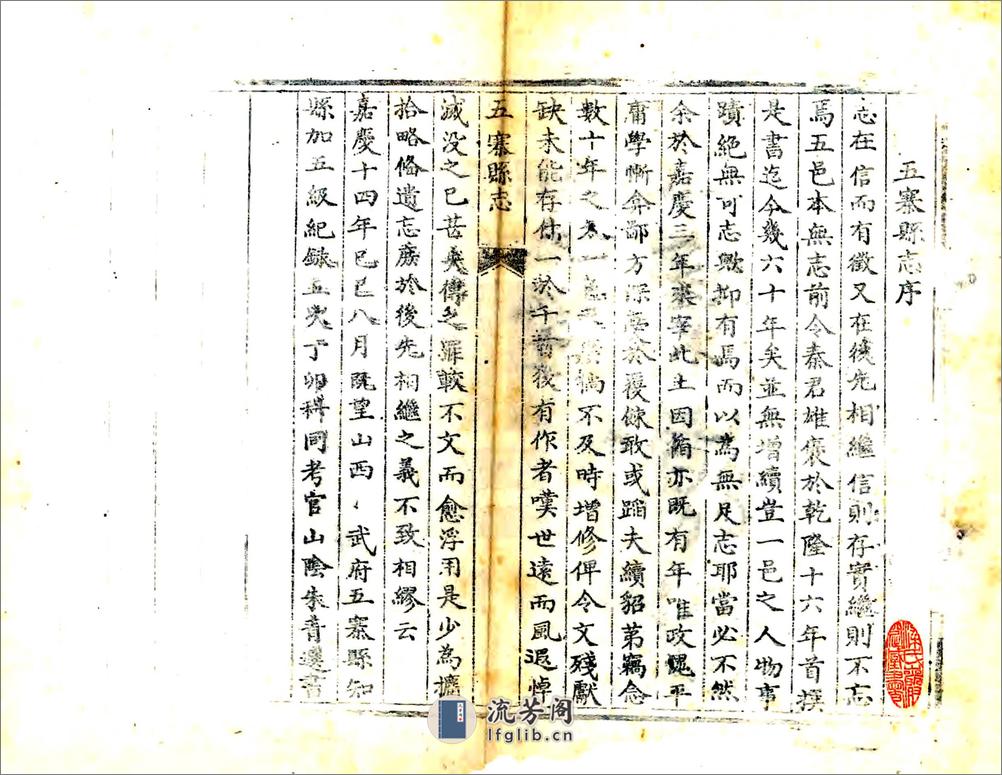 五寨縣志序
志在信而有徵又在後先相繼信則存實繼則不忘
焉五邑本無志前令秦君雄褒於乾隆十六年首撰
是書迄今幾六十年矣並無增續豈一邑之人物事
蹟絕無可志歟抑有焉而以為無足志耶當必不然
余於嘉慶三年來宰此土因循亦既有年唯政媿平
庸學慚弇鄙方深虞於覆餗敢或蹈夫續貂第竊念
數十年之久一邑之不及時增修俾令文殘獻
缺未能存什一於千百後有作者嘆世遠而風遐悼
五寨縣志
滅没之已甚失傳之罪較不文而愈浮用是少為攟
拾略俻遺忘庶於後先相繼之義不致相繆云
嘉慶十四年已巳八月既望山西武府五寨縣知
縣加五級紀錄五次丁卯科同考官山陰朱青選書
流芳阁
lfglib.cn